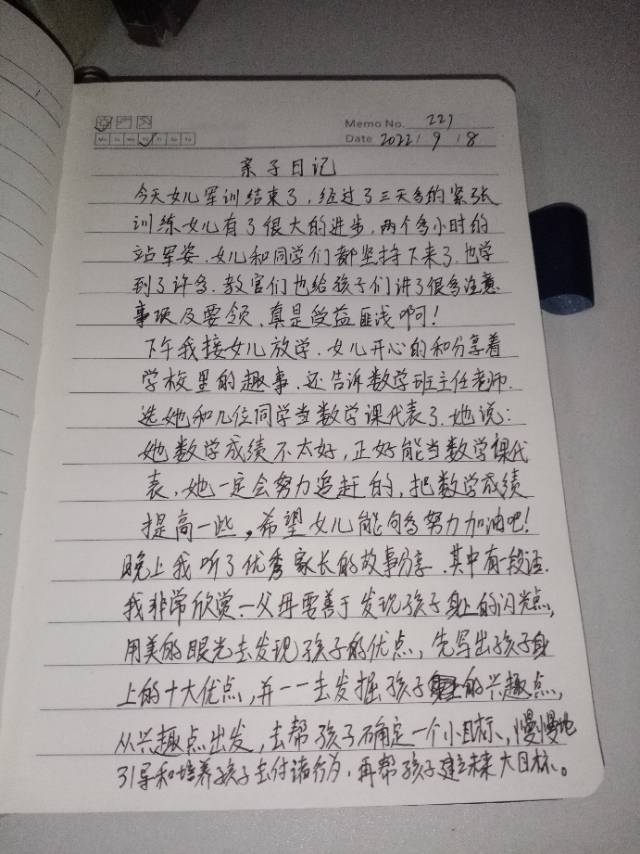 Memo No. 221
Mo Tu We Th Fr Sa Su
Date 2022 / 9 / 8
亲子日记
今天女儿军训结束了，经过了三天多的紧张
训练女儿有了很大的进步，两个多小时的
站军姿，女儿和同学们都坚持下来了，也学
到了许多，教官们也给孩子们讲了很多注意
事项及要领，真是受益匪浅啊！
下午我接女儿放学，女儿开心的和分享着
学校里的趣事，还告诉数学班主任老师，
选她和几位同学当数学课代表了，她说：
她数学成绩不太好，正好能当数学课代
表，她一定会努力追赶的，把数学成绩
提高一些，希望女儿能努力加油吧！
晚上我听了优秀家长的故事分享，其中有一段话，
我非常欣赏，父母要善于发现孩子身上的闪光点，
用美的眼光去发现孩子的优点，先写出孩子身
上的十大优点，并一一去发掘孩子的兴趣点，
从兴趣点出发，去帮孩子确定一个小目标，慢慢地
引导和培养孩子去付诸行为，再帮孩子建立未来大目标。